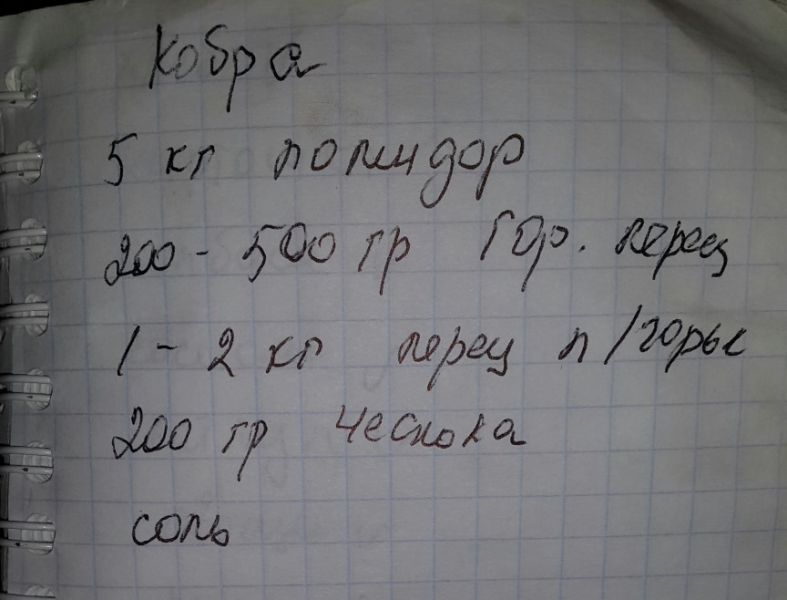 Кобра
5 кг помидор
200 - 500 гр гор. перец
1 - 2 кг перец п/горьк
200 гр чеснока
соль